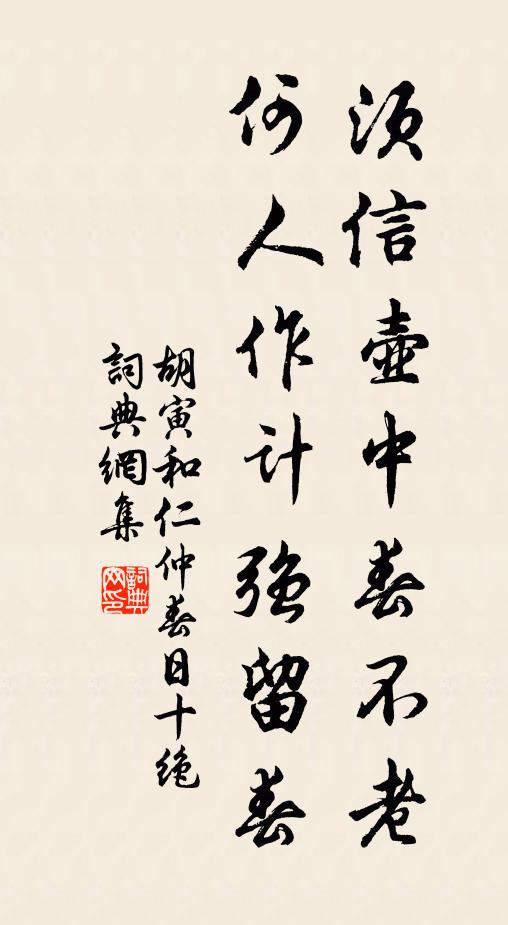 須信壺中春不老
何人作計強留春
胡寅和仁仲春日十絶
詞典網集
詞典
网印